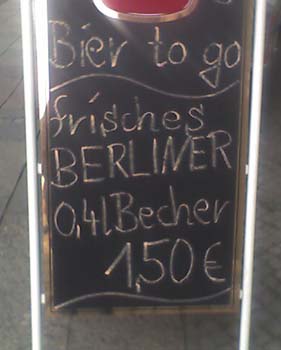 Bier to go
frisches
BERLINER
0,4l Becher
1,50 €